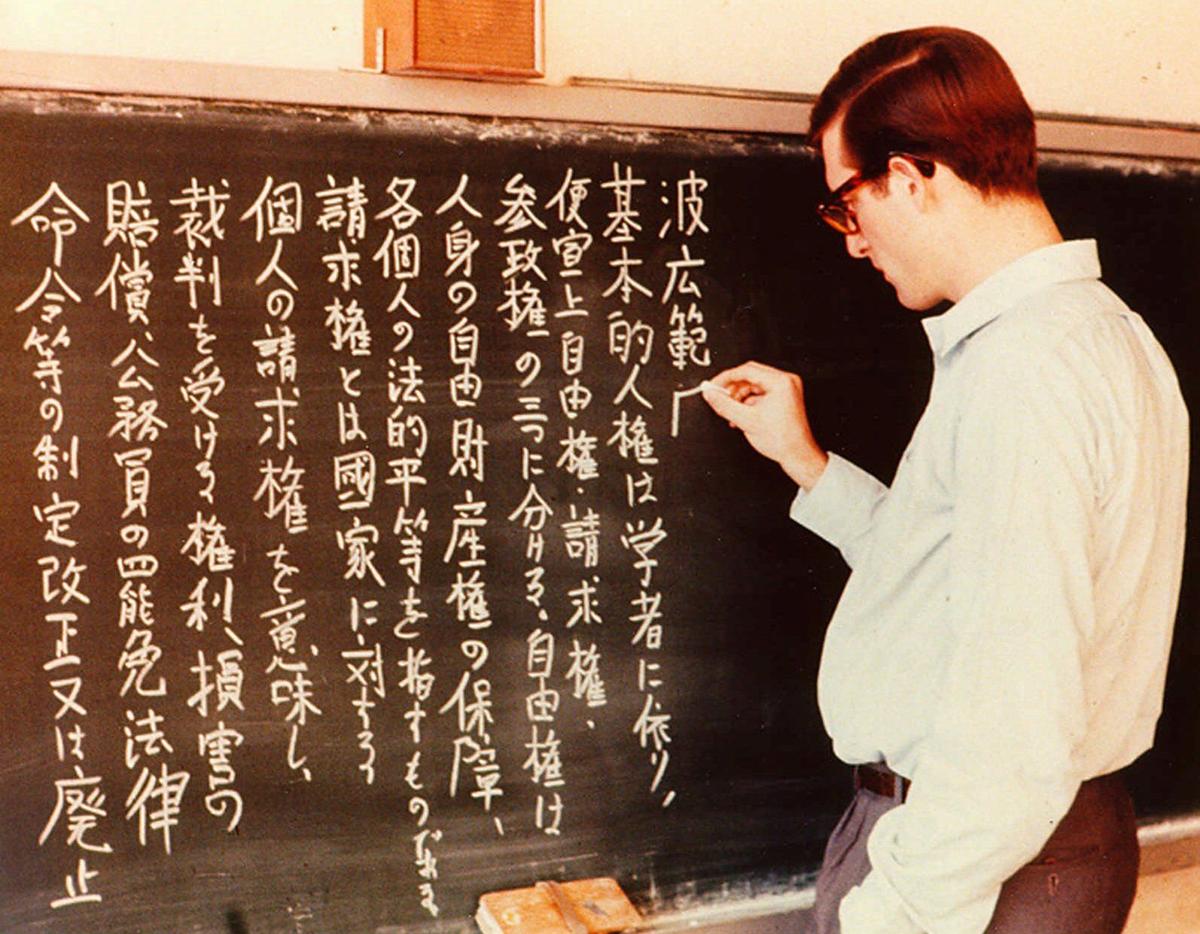 波広範
基本的人権は学者に依り、
便宣上自由権・請求権、
参政権の三つに分ける、自由権は
人身の自由財産権の保障、
各個人の法的平等を指すものである
請求権とは國家に対する
個人の請求権を意味し、
裁判を受ける権利、損害の
賠償、公務員の罷免法律
命令等の制定改正又は廃止